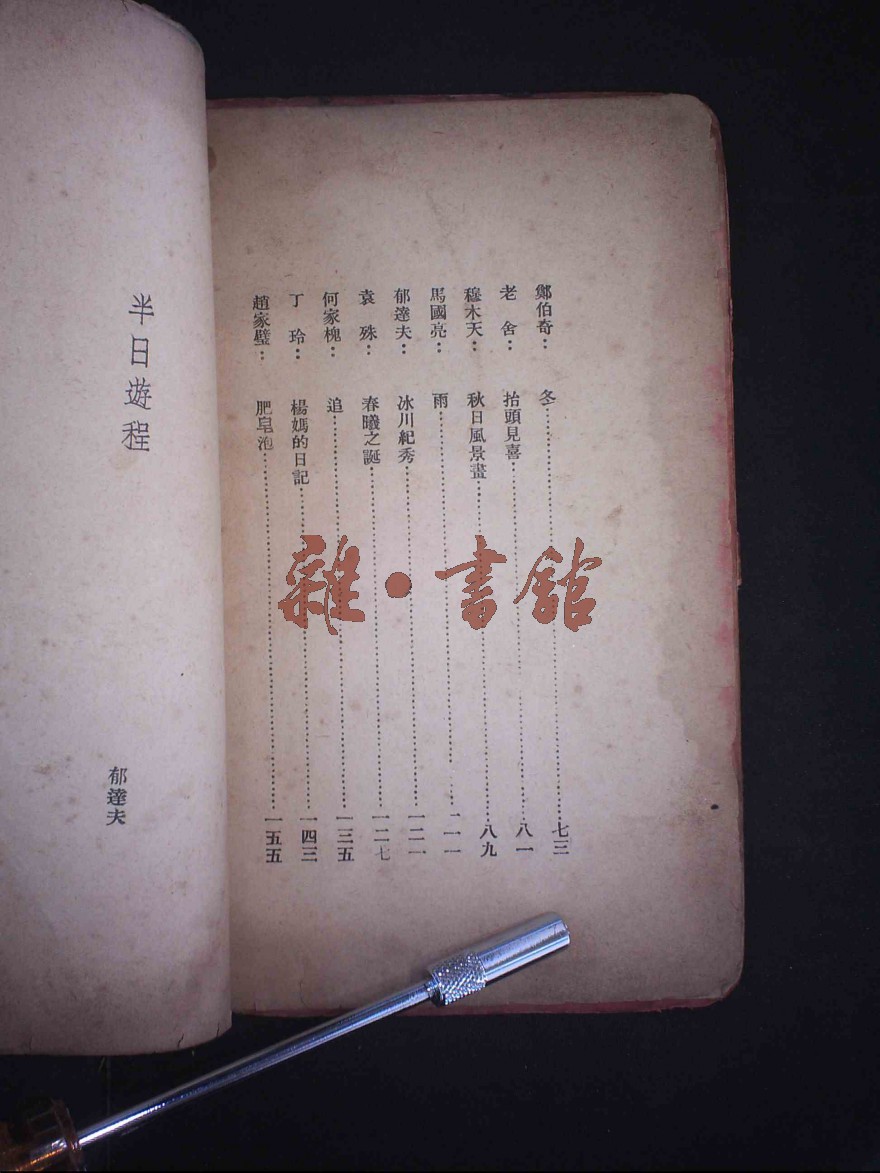 鄭伯奇：冬……七三
老舍：抬頭見喜……八一
穆木天：秋日風景畫……八九
馬國亮：雨……一一一
郁達夫：冰川紀秀……一二一
袁殊：春曦之誕……一二七
何家槐：追……一三五
丁玲：楊媽的日記……一四三
趙家璧：肥皂泡……一五五
半日遊程
郁達夫
雜·書館